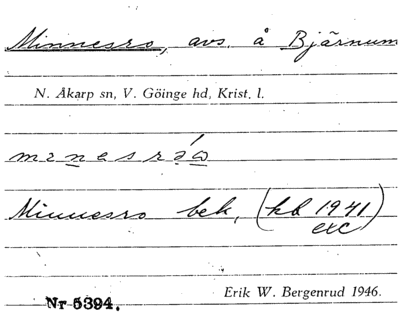 Minnesro, avs. å Bjärnum
N. Åkarp sn, V. Göinge hd, Krist. l.
Minnesro bek. (kb 1941)
exc
Nr 5394. Erik W. Bergenrud 1946.